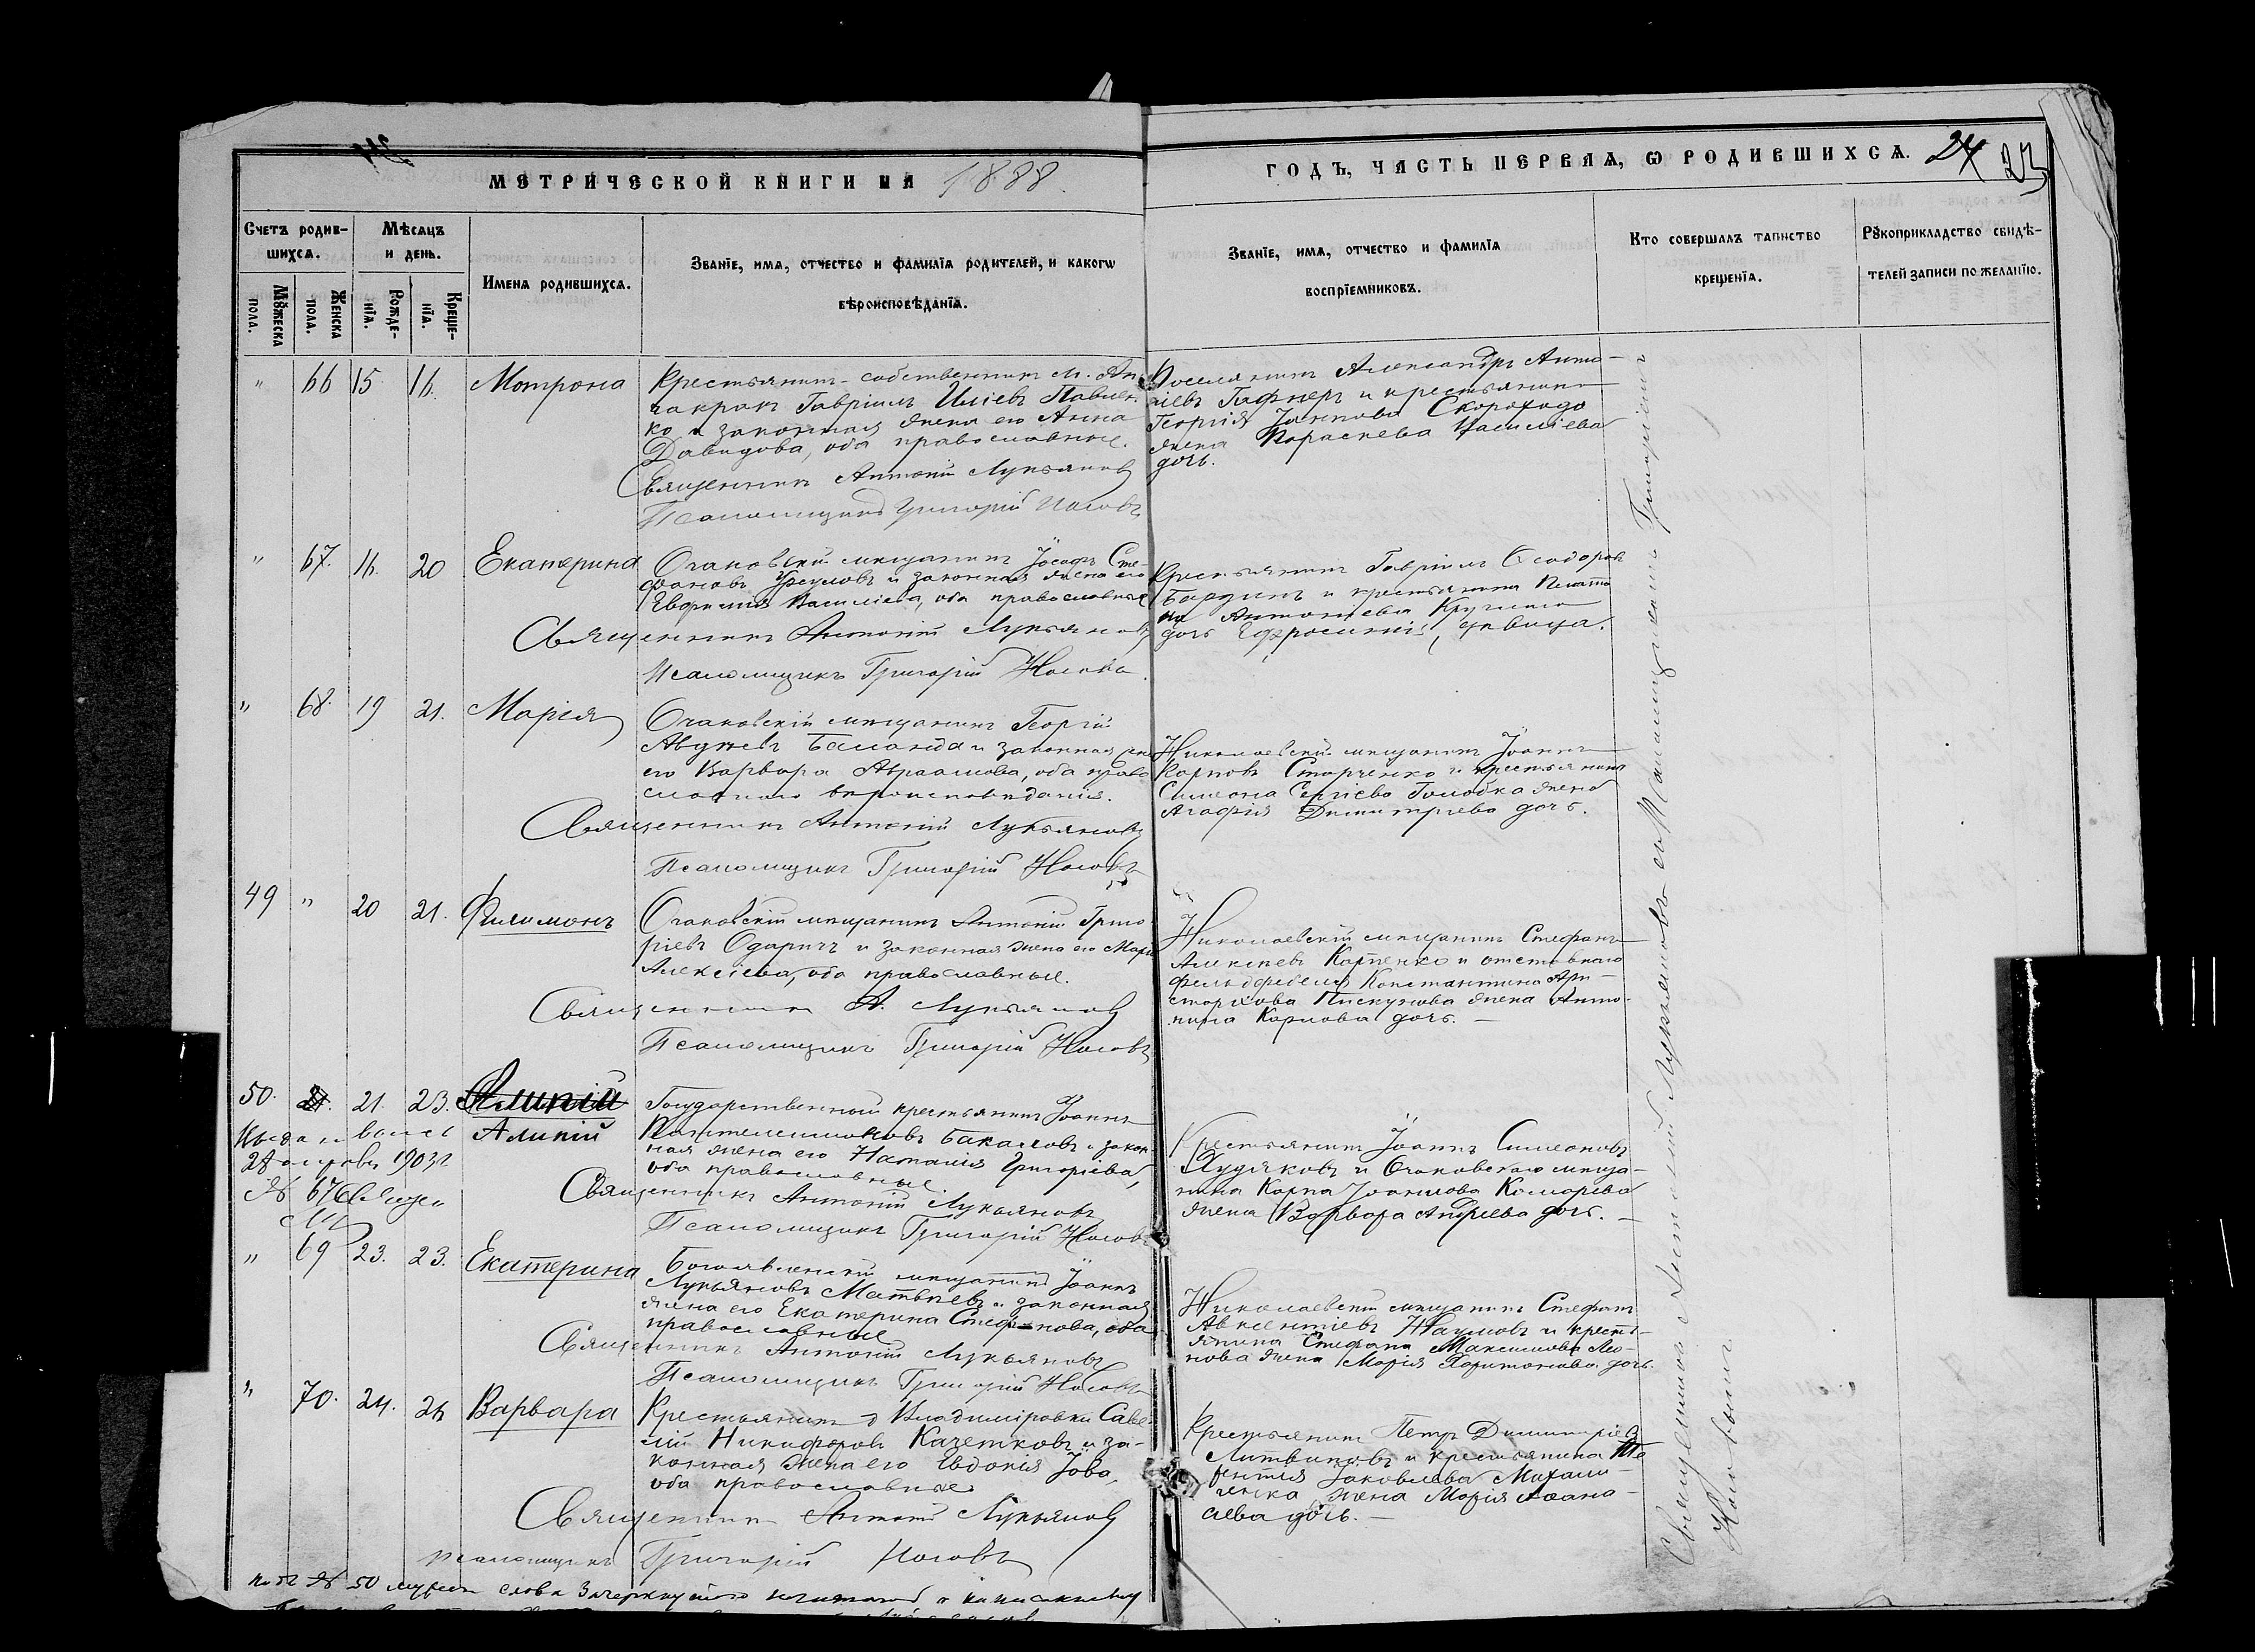 МЕТРИЧЕСКОЙ КНИГИ НА 1888.
ГОДЪ, ЧАСТЬ ПЕРВАЯ, Ѡ РОДИВШИХСЯ. 24 23
Счетъ родив-
шихся.
Мѣсяцъ
и день.
Мꙋжеска
пола.
Женска
пола.
Рожде-
нїя.
Креще-
нїя.
Имена родившихся.
Званїе, имя, отчество и фамилїя родителей, и какогѡ
вѣроисповѣданїя.
Званїе, имя, отчество и фамилїя
воспрїемниковъ.
Кто совершалъ таинство
крещенїя.
Рꙋкоприкладство свидѣ-
телей записи по желанїю.
" 66 15. 16. Мотрона
Крестьянинъ-собственникъ м. Ан-
чакракъ Гавріилъ Иліевъ Павлен-
ко и законная жена его Анна
Давидова, оба православные.
Священникъ Антоній Лукьяновъ
Псаломщикъ Григорій Носовъ
Поселянинъ Александръ Анто-
ніевъ и крестьянина
Георгія Скорохода
жена Параскева Василіева
дочь.
" 67. 16. 20 Екатерина
Очаковскій мѣщанинъ Іосифъ Сте-
фановъ и законная жена его
Евфимія Василіева, оба православные
Священникъ Антоній Лукьяновъ
Псаломщикъ Григорій Носовъ.
Крестьянинъ Гавріилъ Ѳеодоровъ
и крестьянина Плато-
на Антоніева
дочь Ефросинія, дѣвица.
" 68. 19 21. Марія
Очаковскій мѣщанинъ Георгій
Баланда и законная жена
его Варвара Авраамова, оба право
славнаго вѣроисповѣданія.
Священникъ Антоній Лукьяновъ
Псаломщикъ Григорій Носовъ
Николаевскій мѣщанинъ Іоаннъ
Карповъ Старченко и крестьянина
Симеона Сергіева Голобка жена
Агафія Димитріева дочь.
49 " 20 21. Филимонъ
Очаковскій мѣщанинъ Антоній Григо-
ріевъ и законная жена его Марія
Алексіева, оба православные.
Священникъ А. Лукьяновъ
Псаломщикъ Григорій Носовъ
Николаевскій мѣщанинъ Стефанъ
Алексѣевъ Карпенко и отставного
фельдфебеля Константина Ари-
стархова Пискунова жена Анто-
нина Карпова дочь. —
50. 21. 23. Алипій
Алипій
Государственный крестьянинъ Іоаннъ
Пантелеимоновъ Бакаловъ и закон-
ная жена его Наталія Григоріева,
оба православные.
Священникъ Антоній Лукьяновъ
Псаломщикъ Григорій Носовъ
Крестьянинъ Іоаннъ Симеоновъ
Худяковъ и Очаковскаго мѣща-
нина Карпа Комарева
жена Варвара Андреева дочь. —
1903 г.
№ 676
" 69 23. 23. Екатерина
Богоявленскій мѣщанинъ Іоаннъ
Лукьяновъ Матвѣевъ и законная
жена его Екатерина Стефанова, оба
православные
Священникъ Антоній Лукьяновъ
Псаломщикъ Григорій Носовъ
Николаевскій мѣщанинъ Стефанъ
Авксентіевъ Наумовъ и кресть-
янина Стефана Максимова Лео-
нова жена Марія Харитонова дочь.
" 70. 24. Варвара
Крестьянинъ д Владиміровки Саве-
лій Никифоровъ Казетковъ и за-
конная жена его Евдокія Іова,
оба православные
Священникъ Антоній Лукьяновъ
псаломщикъ Григорій Носовъ
Крестьянинъ Петръ Димитріевъ
Литвиновъ и крестьянина Те-
рентія Іаковлева Михали-
ченка жена Марія Аѳана-
сіева дочь. —
Священникъ Антоній Лукьяновъ съ псаломщикомъ Григоріемъ
Носовымъ